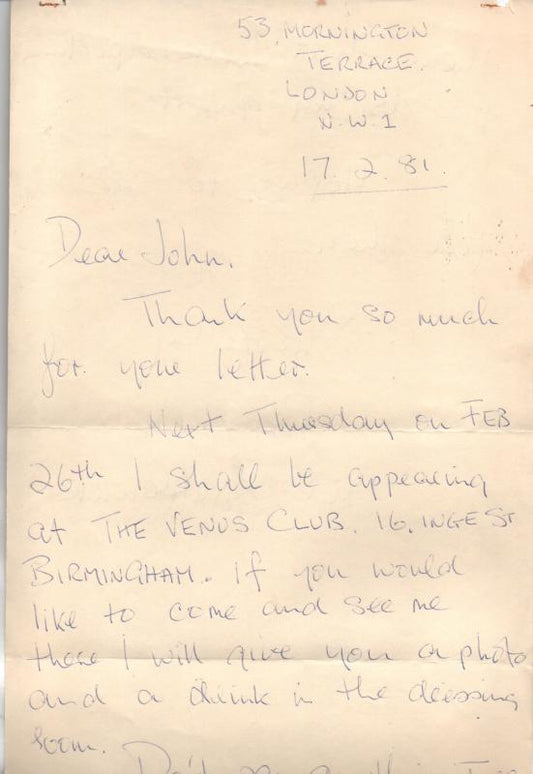 53, MORNINGTON
TERRACE.
LONDON
N.W.1
17. 2. 81.
Dear John.
Thank you so much
for your letter.
Next Thursday on FEB
26th I shall be appearing
at THE VENUS CLUB. 16, INGE ST
BIRMINGHAM. If you would
like to come and see me
there I will give you a photo
and a drink in the dressing
room.